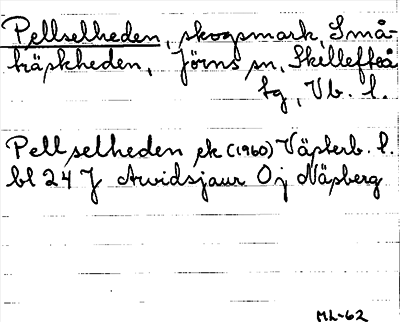 Pellselheden, skogsmark, Små-
träskheden, Jörns sn, Skellefteå
tg, Vb. l.
Pellselheden ek (1960) Västerb. l.
bl 24 J Arvidsjaur Oj Näsberg
ML-62